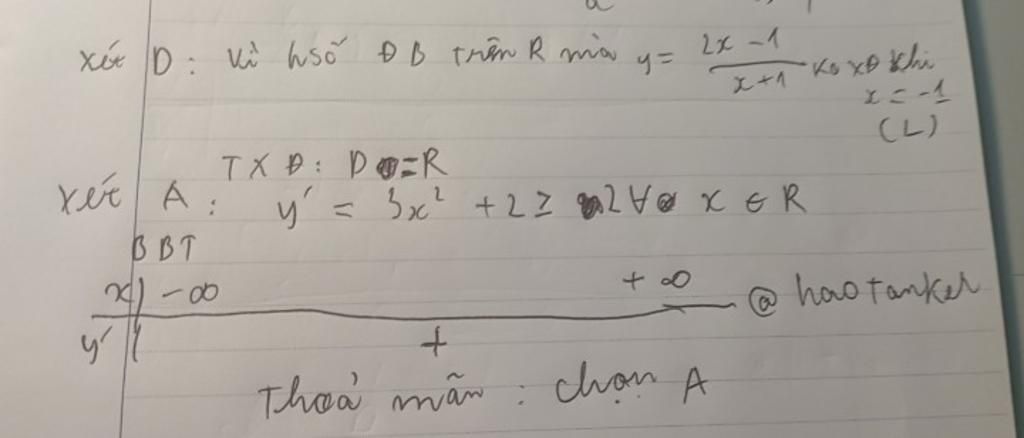 xét D: Vì hsố ĐB trên R mà y = \frac{2x - 1}{x + 1} ko xđ khi
x = -1
(L)
TXĐ: D = R
xét A: y' = 3x² + 2 ≥ 2 ∀ x ∈ R
BBT
x | -∞ +∞ @haotanker
y' | +
Thoả mãn: chọn A